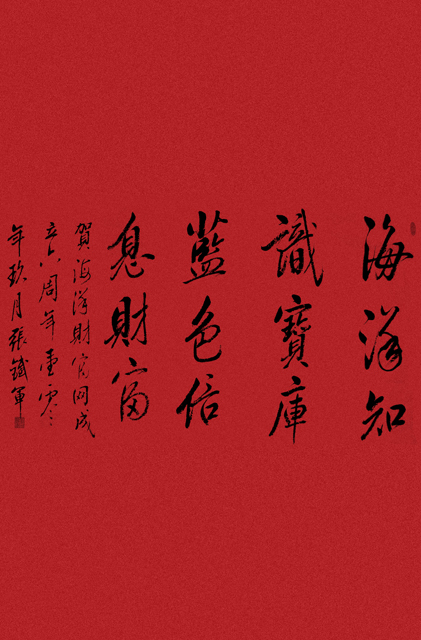 海洋知
識寶庫
藍色信
息財富
賀海洋財富网成
立六周年壹零
年玖月張鐵軍